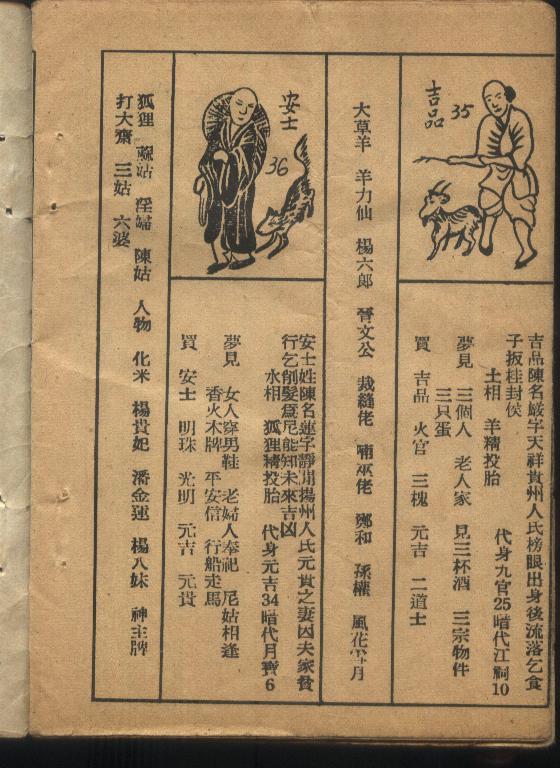 吉品 35
吉品陳名嚴字天祥貴州人氏榜眼出身後流落乞食
子扳桂封侯
土相 羊精投胎 代身九官25暗代江祠10
夢見 三個人 老人家 見三杯酒 三宗物件
三只蛋
買 吉品 火官 三槐 元吉 二道士
大草羊 羊力仙 楊六郎 晉文公 裁縫佬 喃巫佬 鄭和 孫權 風花雪月
安士 36
安士姓陳名蓮字靜川揚州人氏元貴之妻因夫家貧
行乞削髮爲尼能知未來吉凶
水相 狐狸精投胎 代身元吉34暗代月寶6
夢見 女人穿男鞋 老婦人奉祀 尼姑相逢
香火木牌 平安信 行船走馬
買 安士 明珠 光明 元吉 元貴
狐狸 姑 淫婦 陳姑 人物 化米 楊貴妃 潘金蓮 楊八妹 神主牌
打大齋 三姑 六婆